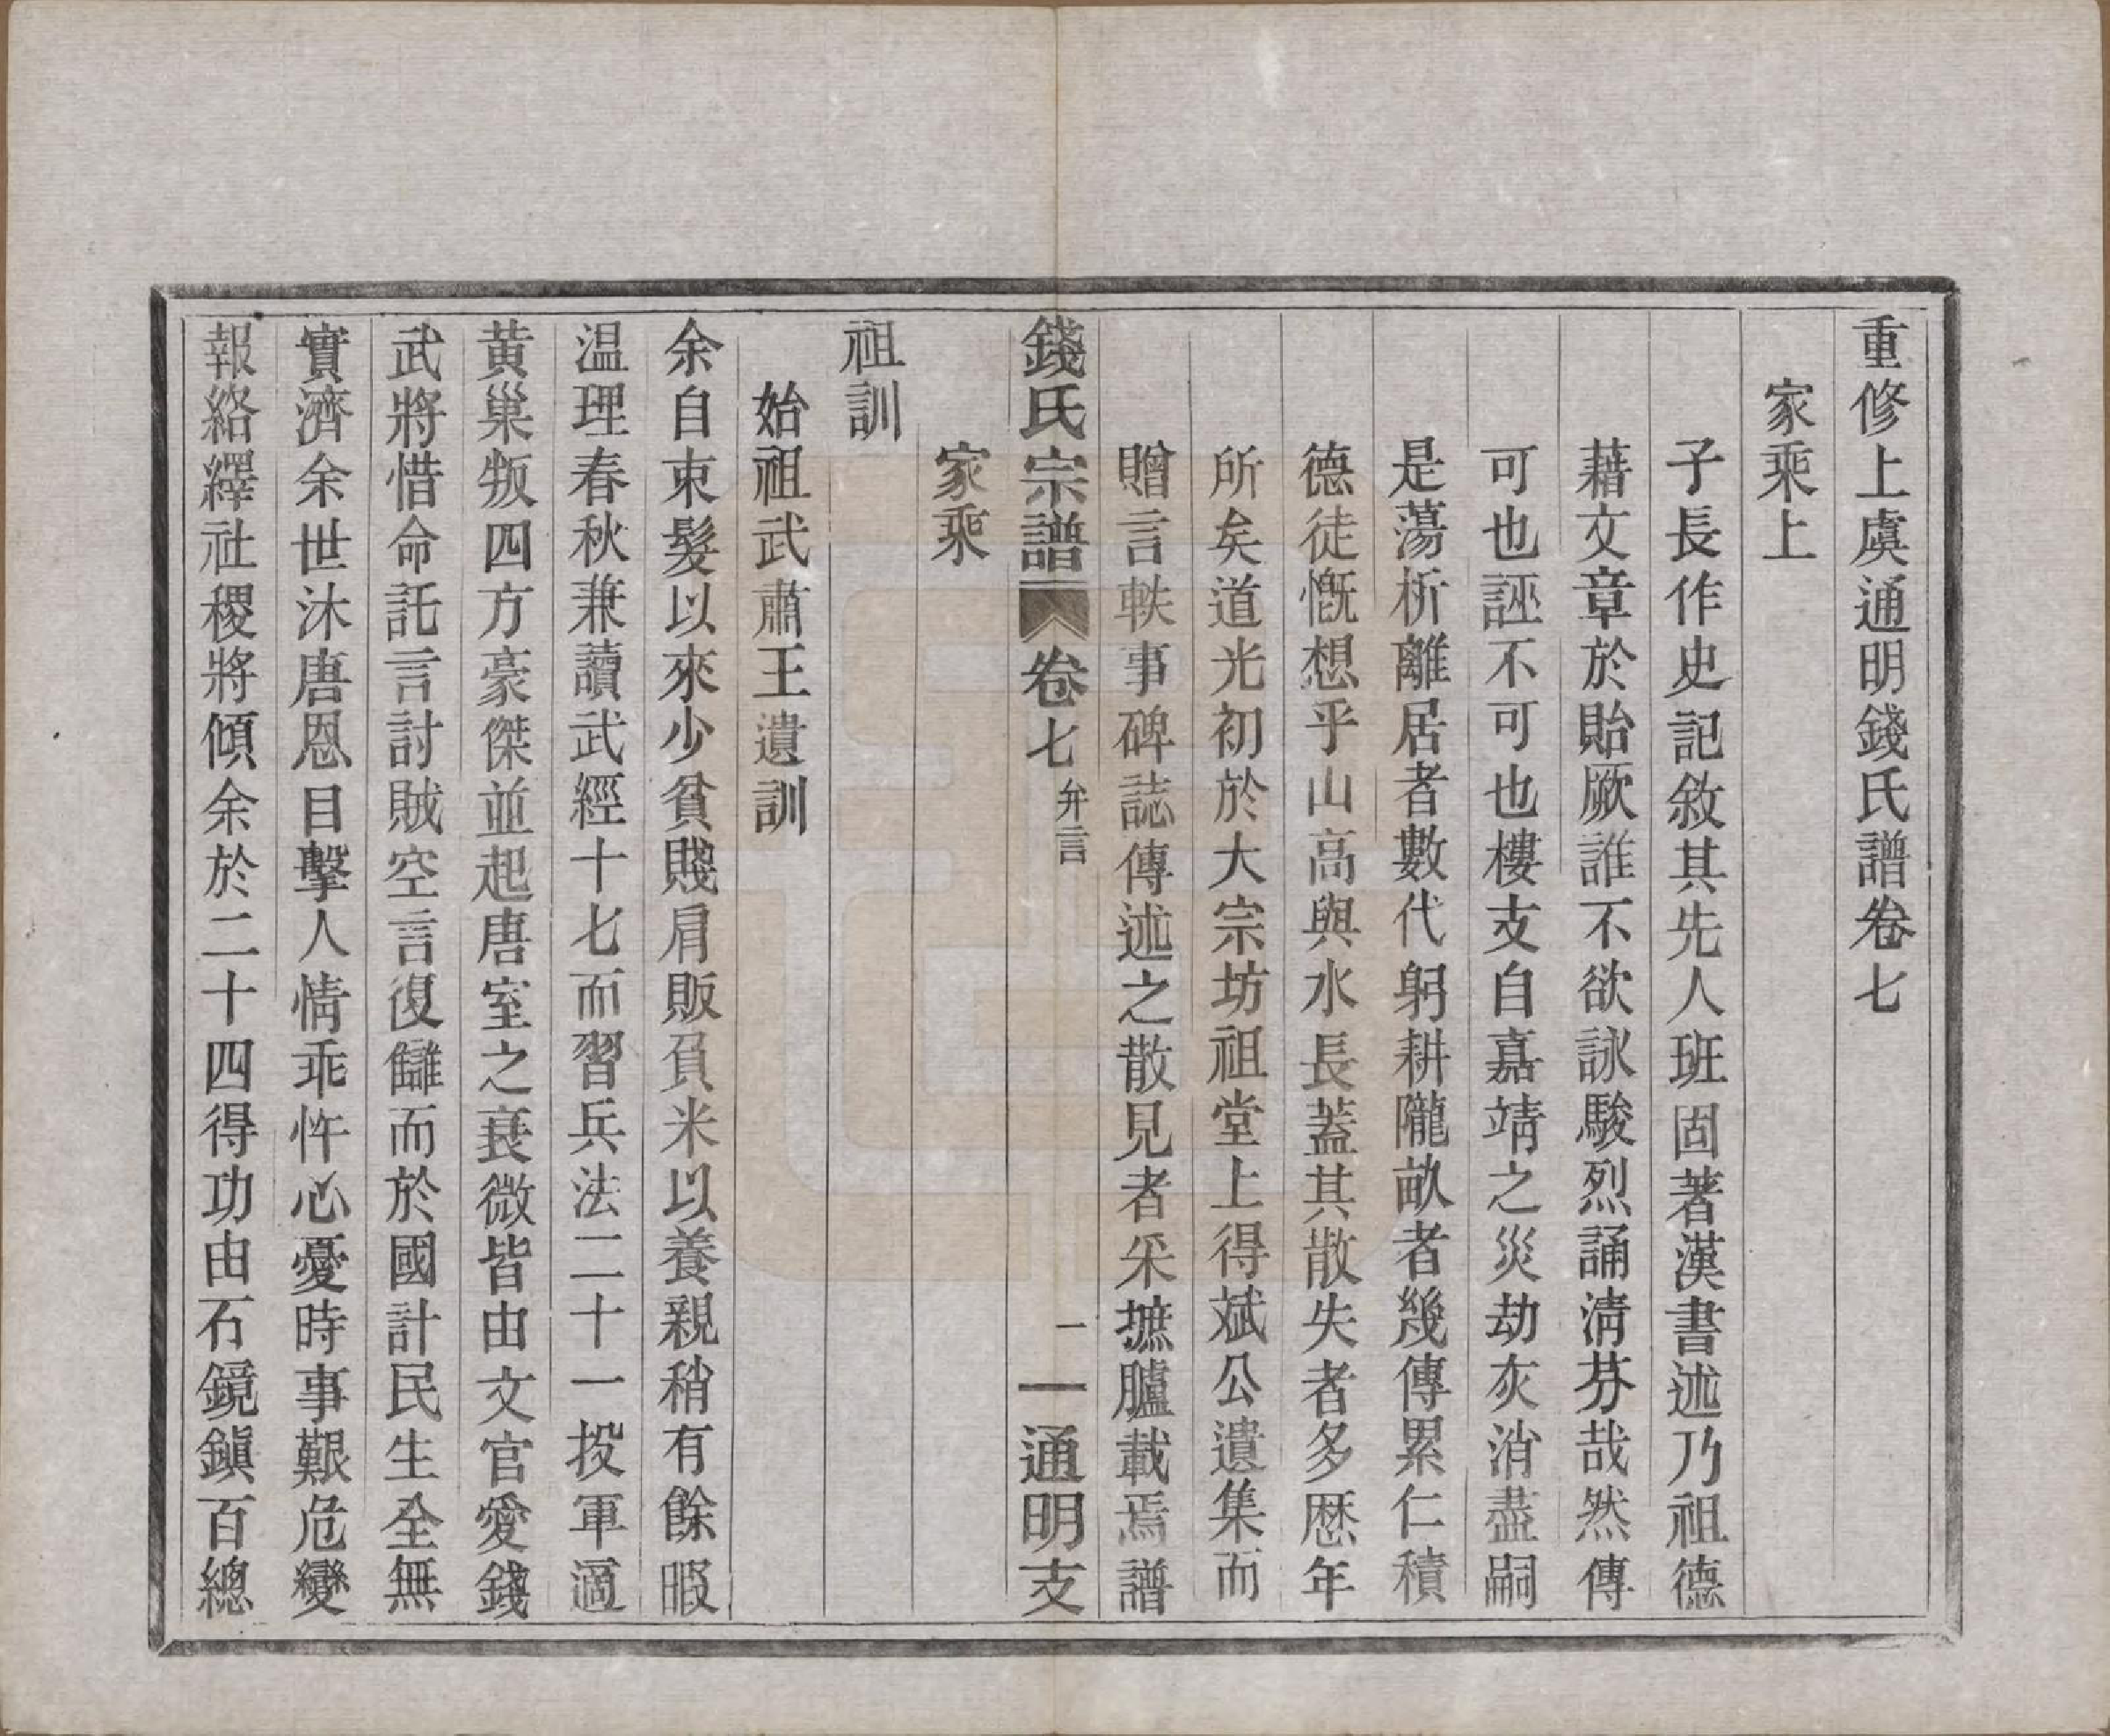 重修上虞通明錢氏譜卷七
家乘上
子長作史記敘其先人班固著漢書述乃祖德
藉文章於貽厥誰不欲詠駿烈誦淸芬哉然傳
可也誣不可也樓支自嘉靖之災劫灰消盡嗣
是蕩析離居者數代躬耕隴畝者幾傳累仁積
德徒慨想乎山高與水長蓋其散失者多歷年
所矣道光初於大宗坊祖堂上得斌公遺集而
贈言軼事碑誌傳述之散見者采摭臚載焉譜
錢氏宗譜 卷七 弁言 一 通明支
家乘
祖訓
始祖武肅王遺訓
余自束髮以來少貧賤肩販負米以養親稍有餘暇
温理春秋兼讀武經十七而習兵法二十一投軍適
黃巢叛四方豪傑並起唐室之衰微皆由文官愛錢
武將惜命託言討賊空言復讎而於國計民生全無
實濟余世沐唐恩目擊人情乖忤心憂時事艱危變
報絡繹社稷將傾余於二十四得功由石鏡鎭百總